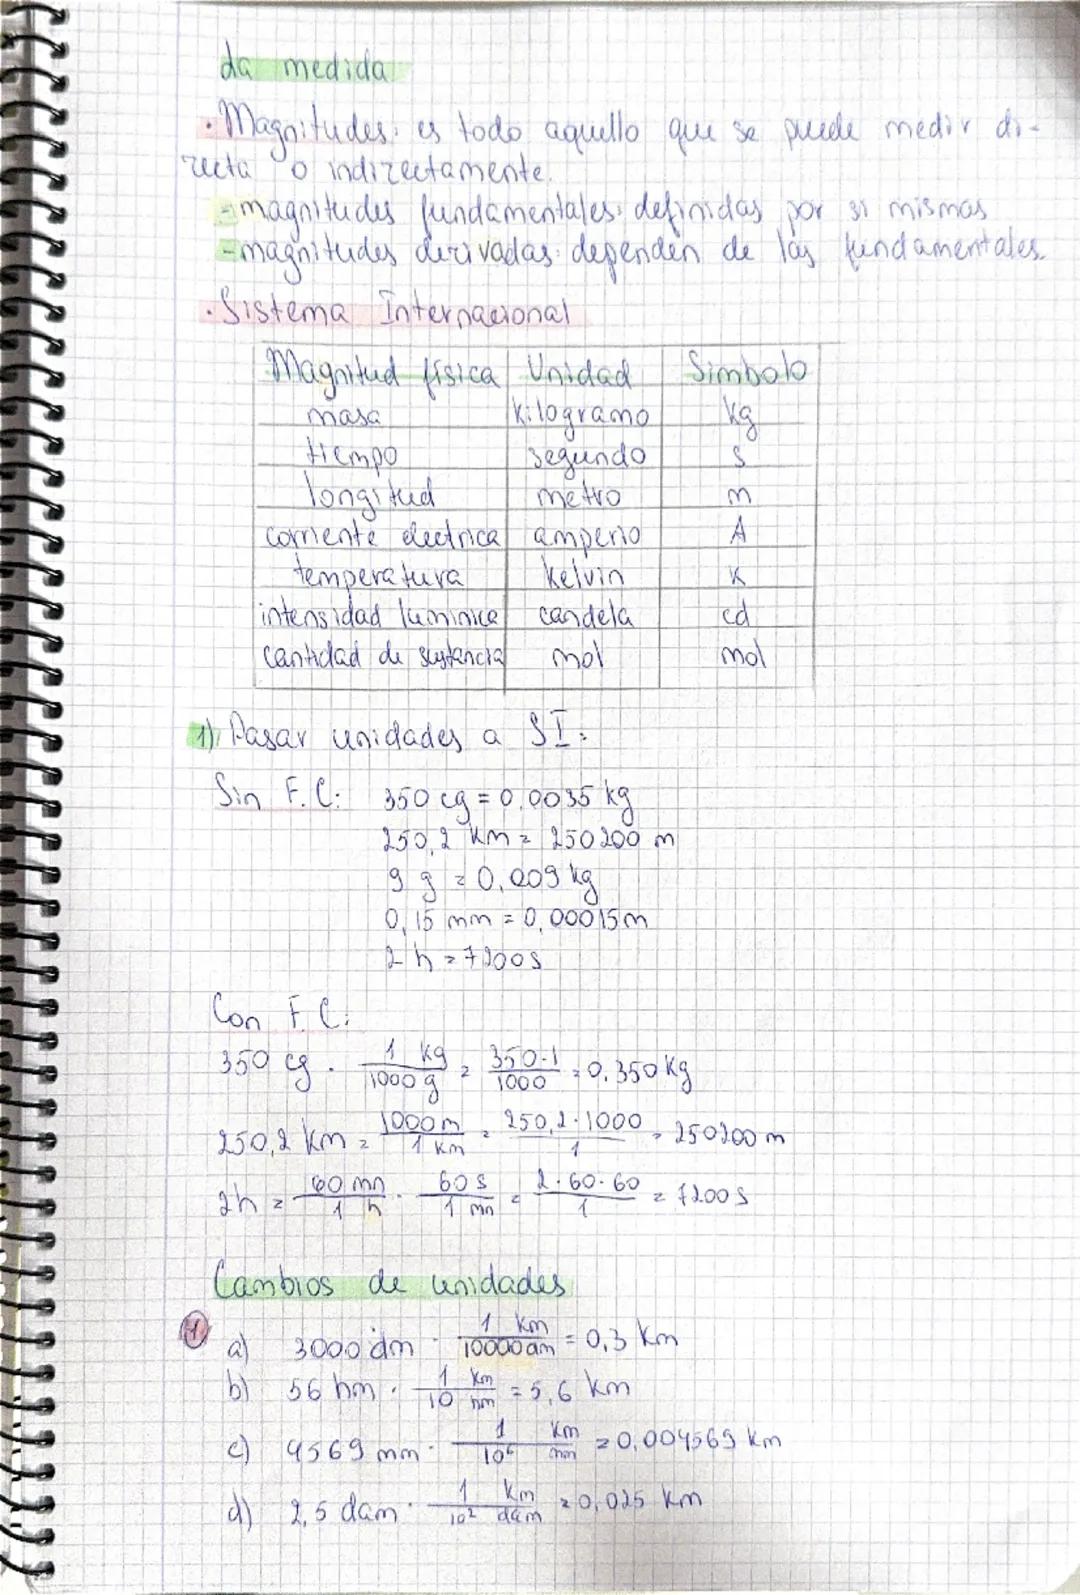 da medida
• Magnitudes: es todo aquello que se puede medir di-
recta o indirectamente.
- magnitudes fundamentales: definidas por si mismas
- magnitudes derivadas: dependen de las fundamentales.
• Sistema Internacional
Magnitud física Unidad Simbolo
masa kilogramo kg
tiempo segundo s
longitud metro m
corriente electrica amperio A
temperatura kelvin K
intensidad luminica candela cd
cantidad de sustancia mol mol
1) Pasar unidades a SI:
Sin F.C: 350 cg = 0,0035 kg
250,2 km = 250200 m
9 g = 0,009 kg
0,15 mm = 0,00015 m
2 h = 7200 s
Con F.C:
350 cg · 1 kg / 1000 g = 350·1 / 1000 = 0,350 kg
250,2 km = 1000 m / 1 km = 250,2·1000 / 1 = 250200 m
2h = 60 mn / 1 h · 60 s / 1 mn = 2·60·60 / 1 = 7200 s
Cambios de unidades
1 a) 3000 dm · 1 km / 10000 dm = 0,3 km
b) 56 hm · 1 km / 10 hm = 5,6 km
c) 4569 mm · 1 km / 10⁶ mm = 0,004569 km
d) 2,5 dam · 1 km / 10² dam = 0,025 km